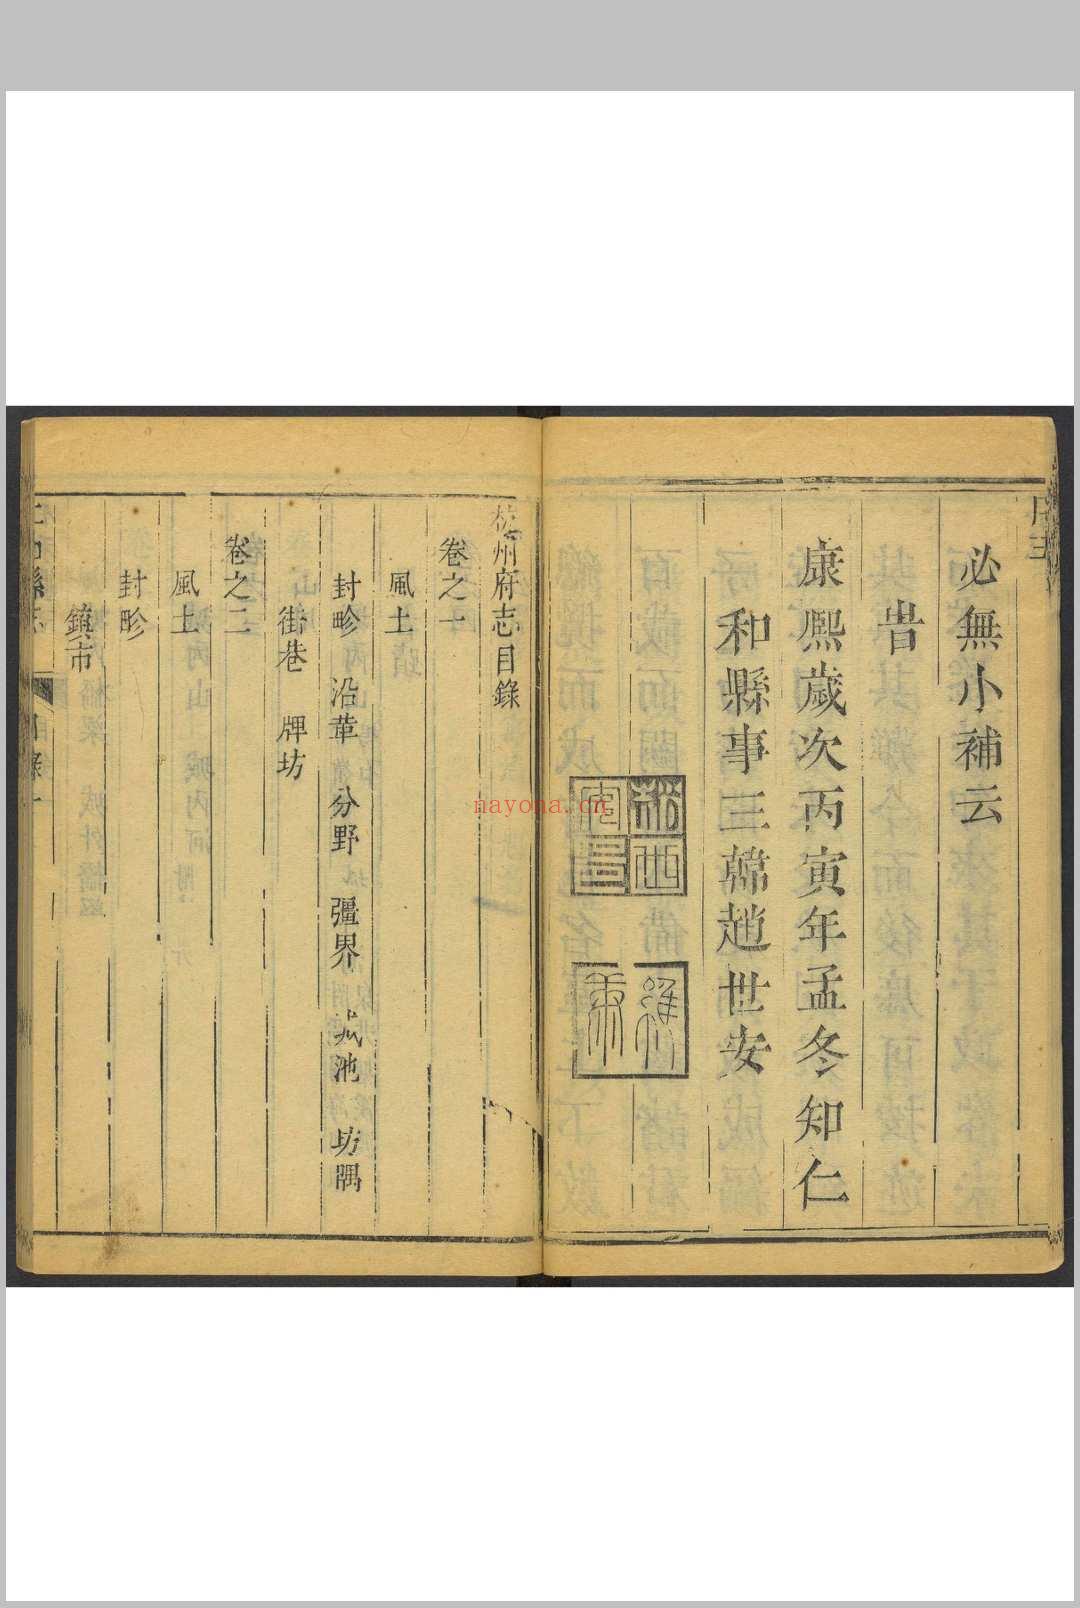 必無小補云
旹
康熙歲次丙寅年孟冬知仁
和縣事三韓趙世安
杭州府志目錄
卷之一
風土
封畛 沿革 分野 疆界 城池 坊隅
街巷 牌坊
卷之二
風土
封畛
鎮市
nayona.cn